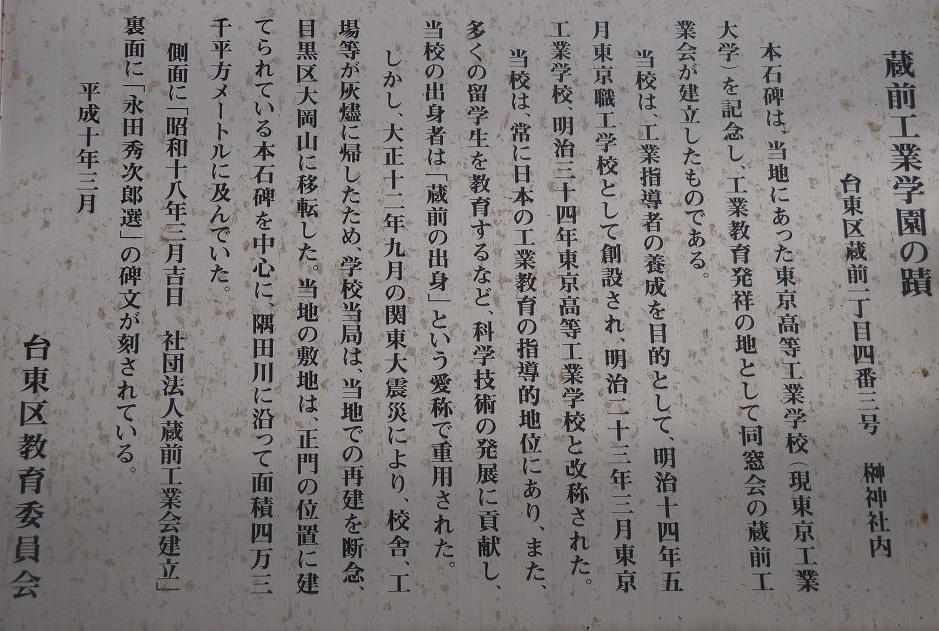 蔵前工業学園の蹟
台東区蔵前一丁目四番三号　榊神社内
本石碑は、当地にあった東京高等工業学校（現東京工業
大学）を記念し、工業教育発祥の地として同窓会の蔵前工
業会が建立したものである。
当校は、工業指導者の養成を目的として、明治十四年五
月東京職工学校として創設され、明治二十三年三月東京
工業学校、明治三十四年東京高等工業学校と改称された。
当校は、常に日本の工業教育の指導的地位にあり、また、
多くの留学生を教育するなど、科学技術の発展に貢献し、
当校の出身者は「蔵前の出身」という愛称で重用された。
しかし、大正十二年九月の関東大震災により、校舎、工
場等が灰燼に帰したため、学校当局は、当地での再建を断念、
目黒区大岡山に移転した。当地の敷地は、正門の位置に建
てられている本石碑を中心に、隅田川に沿って面積四万三
千平方メートルに及んでいた。
側面に「昭和十八年三月吉日　社団法人蔵前工業会建立」
裏面に「永田秀次郎選」の碑文が刻されている。
平成十年三月
台東区教育委員会